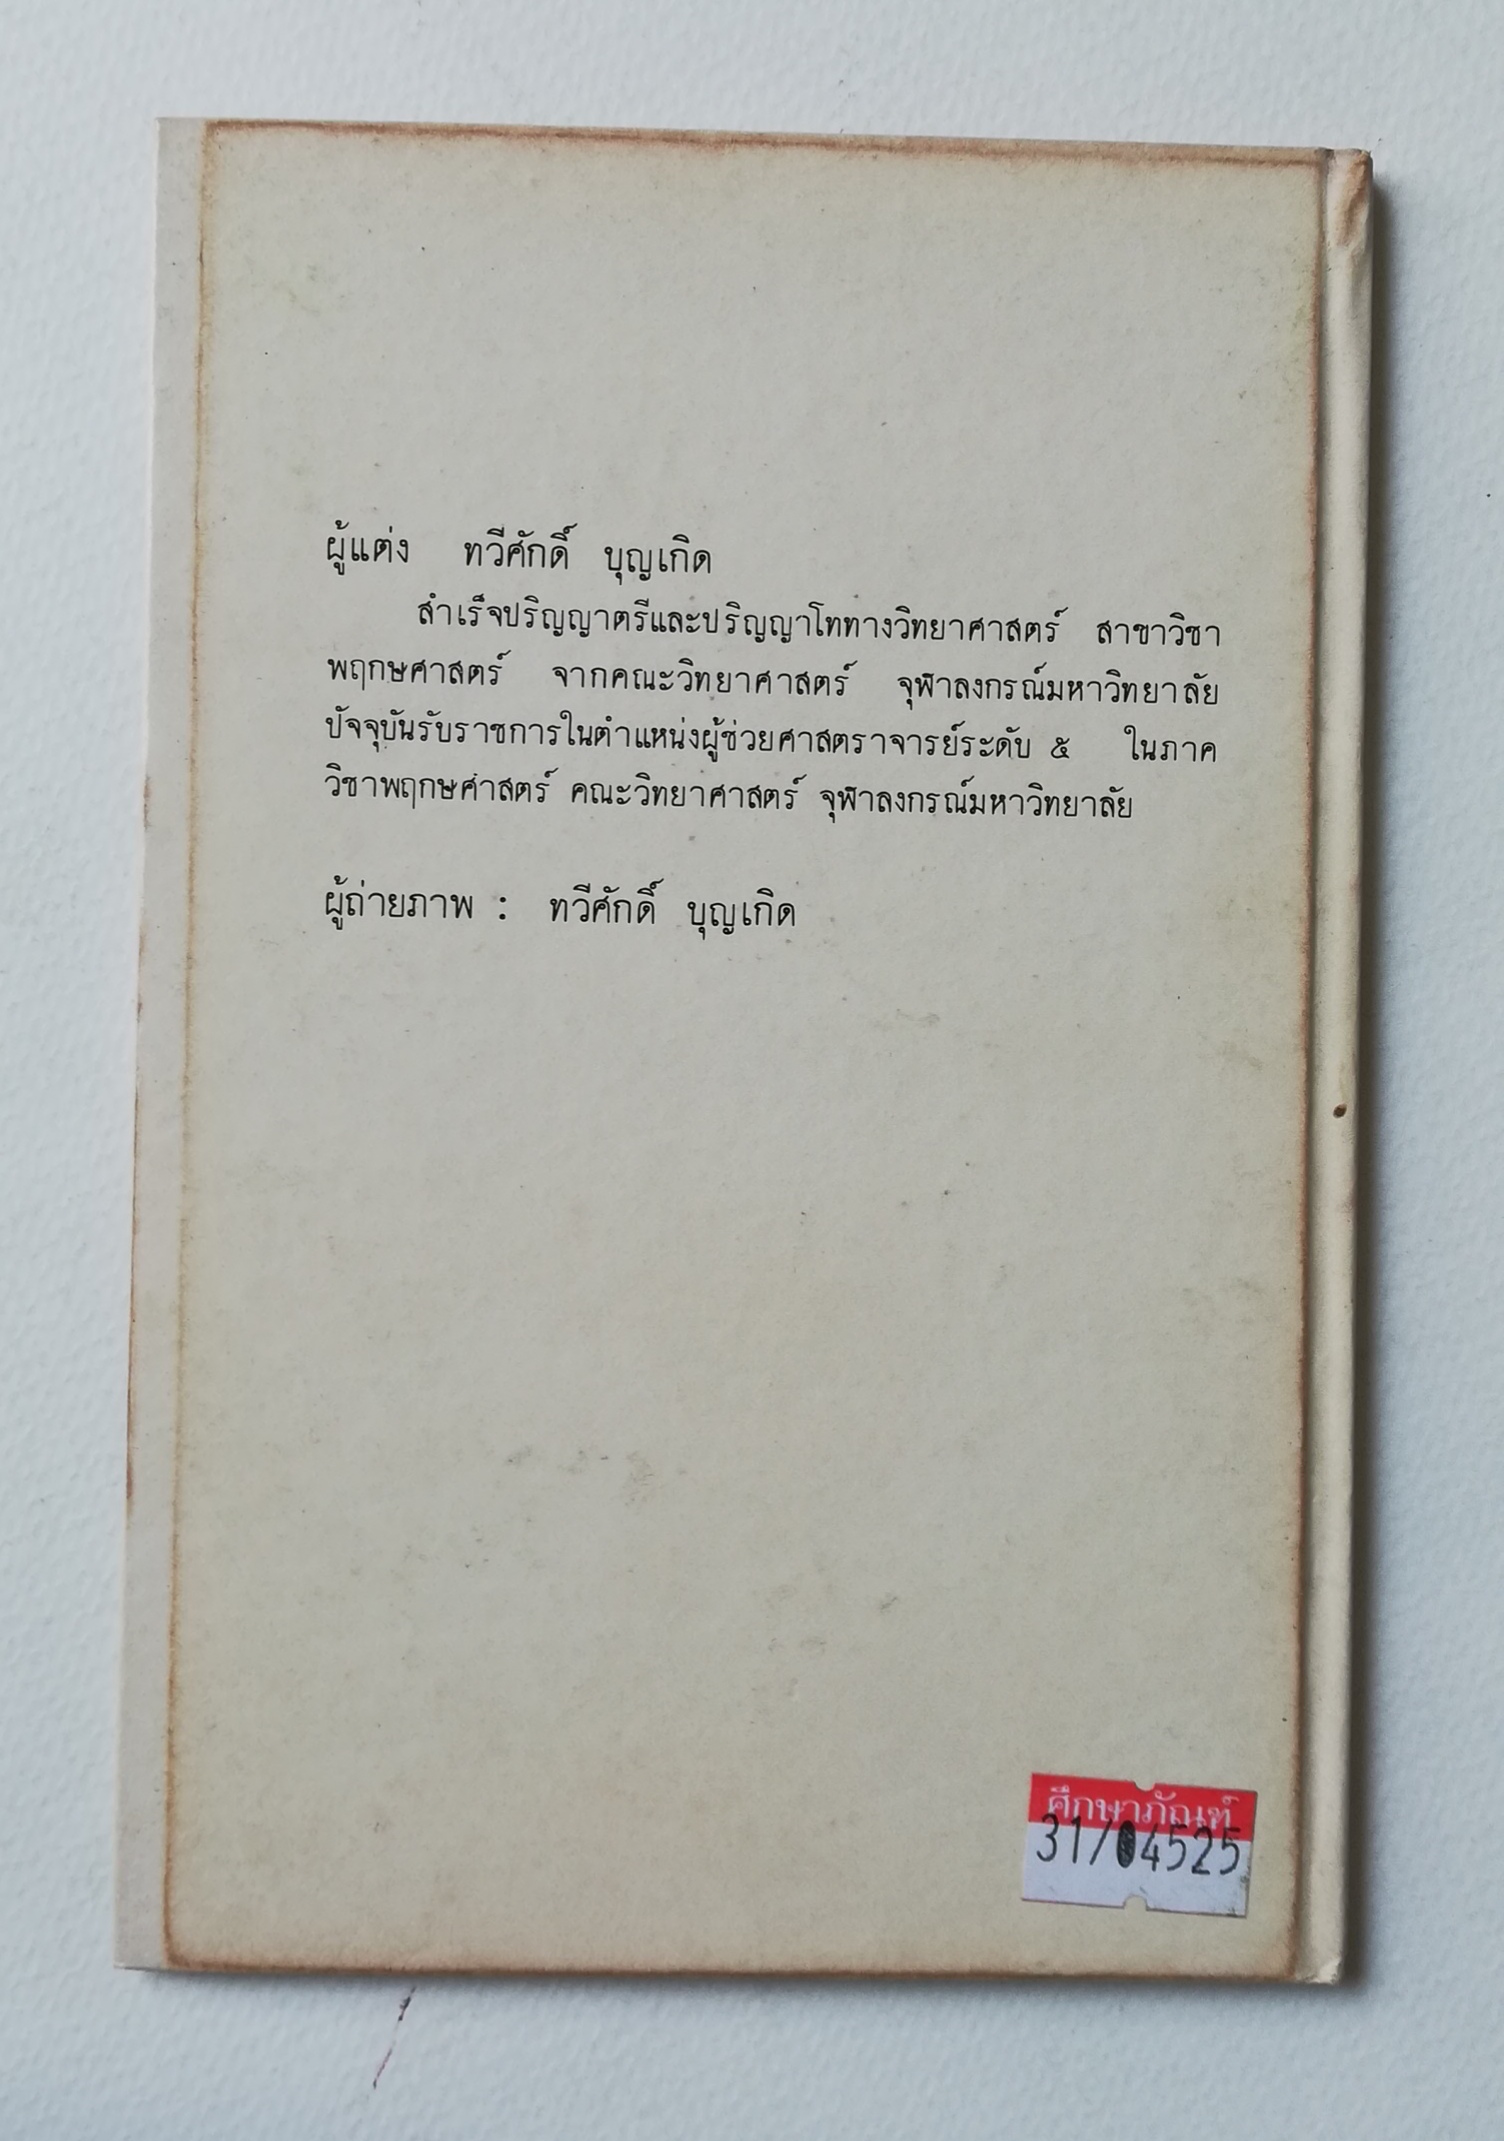 ผู้แต่ง ทวีศักดิ์ บุญเกิด
สำเร็จปริญญาตรีและปริญญาโททางวิทยาศาสตร์ สาขาวิชา
พฤกษศาสตร์ จากคณะวิทยาศาสตร์ จุฬาลงกรณ์มหาวิทยาลัย
ปัจจุบันรับราชการในตำแหน่งผู้ช่วยศาสตราจารย์ระดับ ๕ ในภาค
วิชาพฤกษศาสตร์ คณะวิทยาศาสตร์ จุฬาลงกรณ์มหาวิทยาลัย
ผู้ถ่ายภาพ : ทวีศักดิ์ บุญเกิด
ศึกษาภัณฑ์
31/04525